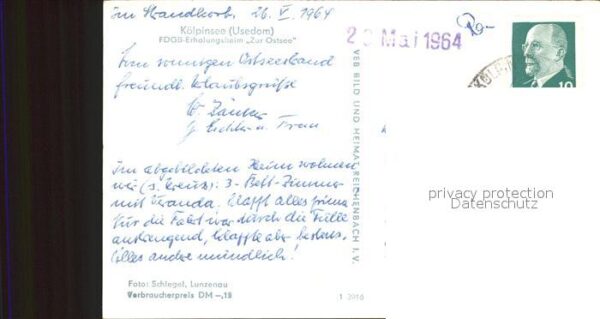 Im Strandkorb, 26. V. 1964
Kölpinsee (Usedom)
FDGB-Erholungsheim „Zur Ostsee“
2 Mai 1964
10
Vom sonnigen Ostseestrand
freundl. Urlaubsgrüße
u. Frau
Im abgebildeten Heim wohnen
wir (s. Kreuz): 3-Bett-Zimmer
mit Veranda. Klappt alles prima
Für die Fahrt war durch die
anstrengend, klappte aber bestens.
Alles andere mündlich!
VEB BILD UND HEIMAT REICHENBACH I. V.
privacy protection
Datenschutz
Foto: Schlegel, Lunzenau
Verbraucherpreis DM –,18
1 2916